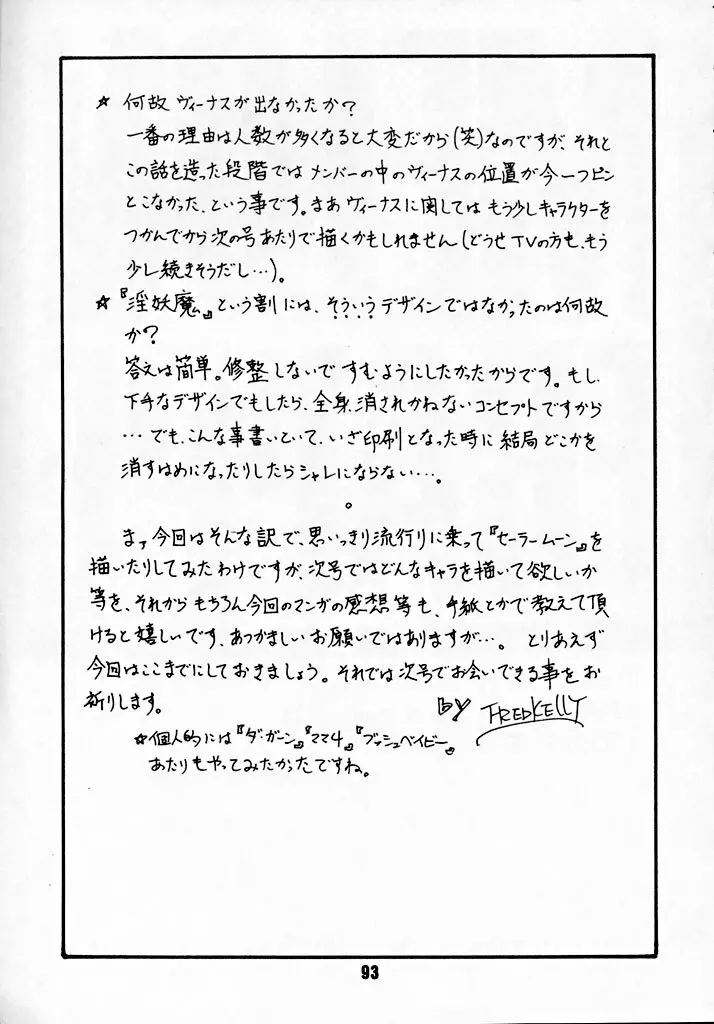 ☆ 何故ヴィーナスが出なかったか?
一番の理由は人数が多くなると大変だから(笑)なのですが、それと
この話を造った段階では メンバーの中のヴィーナスの位置が今一つピン
とこなかった、という事です。まあヴィーナスに関しては もう少しキャラクターを
つかんでから次の号あたりで描くかもしれません(どうせTVの方も、もう
少し続きそうだし…)。
☆『淫妖魔』という割には、そういうデザインではなかったのは何故
か?
答えは簡単。修整しないで すむようにしたかったからです。もし、
下手なデザインでもしたら、全身、消されかねないコンセプトですから
…でも、こんな事書いといて、いざ印刷となった時に結局どこかを
消すはめになったりしたらシャレにならない…。
。
まァ今回はそんな訳で、思いっきり流行りに乗って『セーラームーン』を
描いたりしてみたわけですが、次号ではどんなキャラを描いて欲しいか
等を、それから もちろん今回のマンガの感想等も、手紙とかで教えて頂
けると嬉しいです、あつかましいお願いではありますが…。とりあえず
今回はここまでにしておきましょう。それでは次号でお会いできる事をお
祈りします。
BY FREDKELLY
☆個人的には『ダ・ガーン』『ママ4』『ブッシュベイビー』
あたりもやってみたかったですね。
93